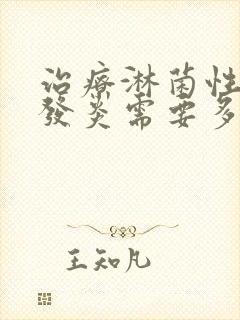 治療淋菌性
發炎需要多
王知凡